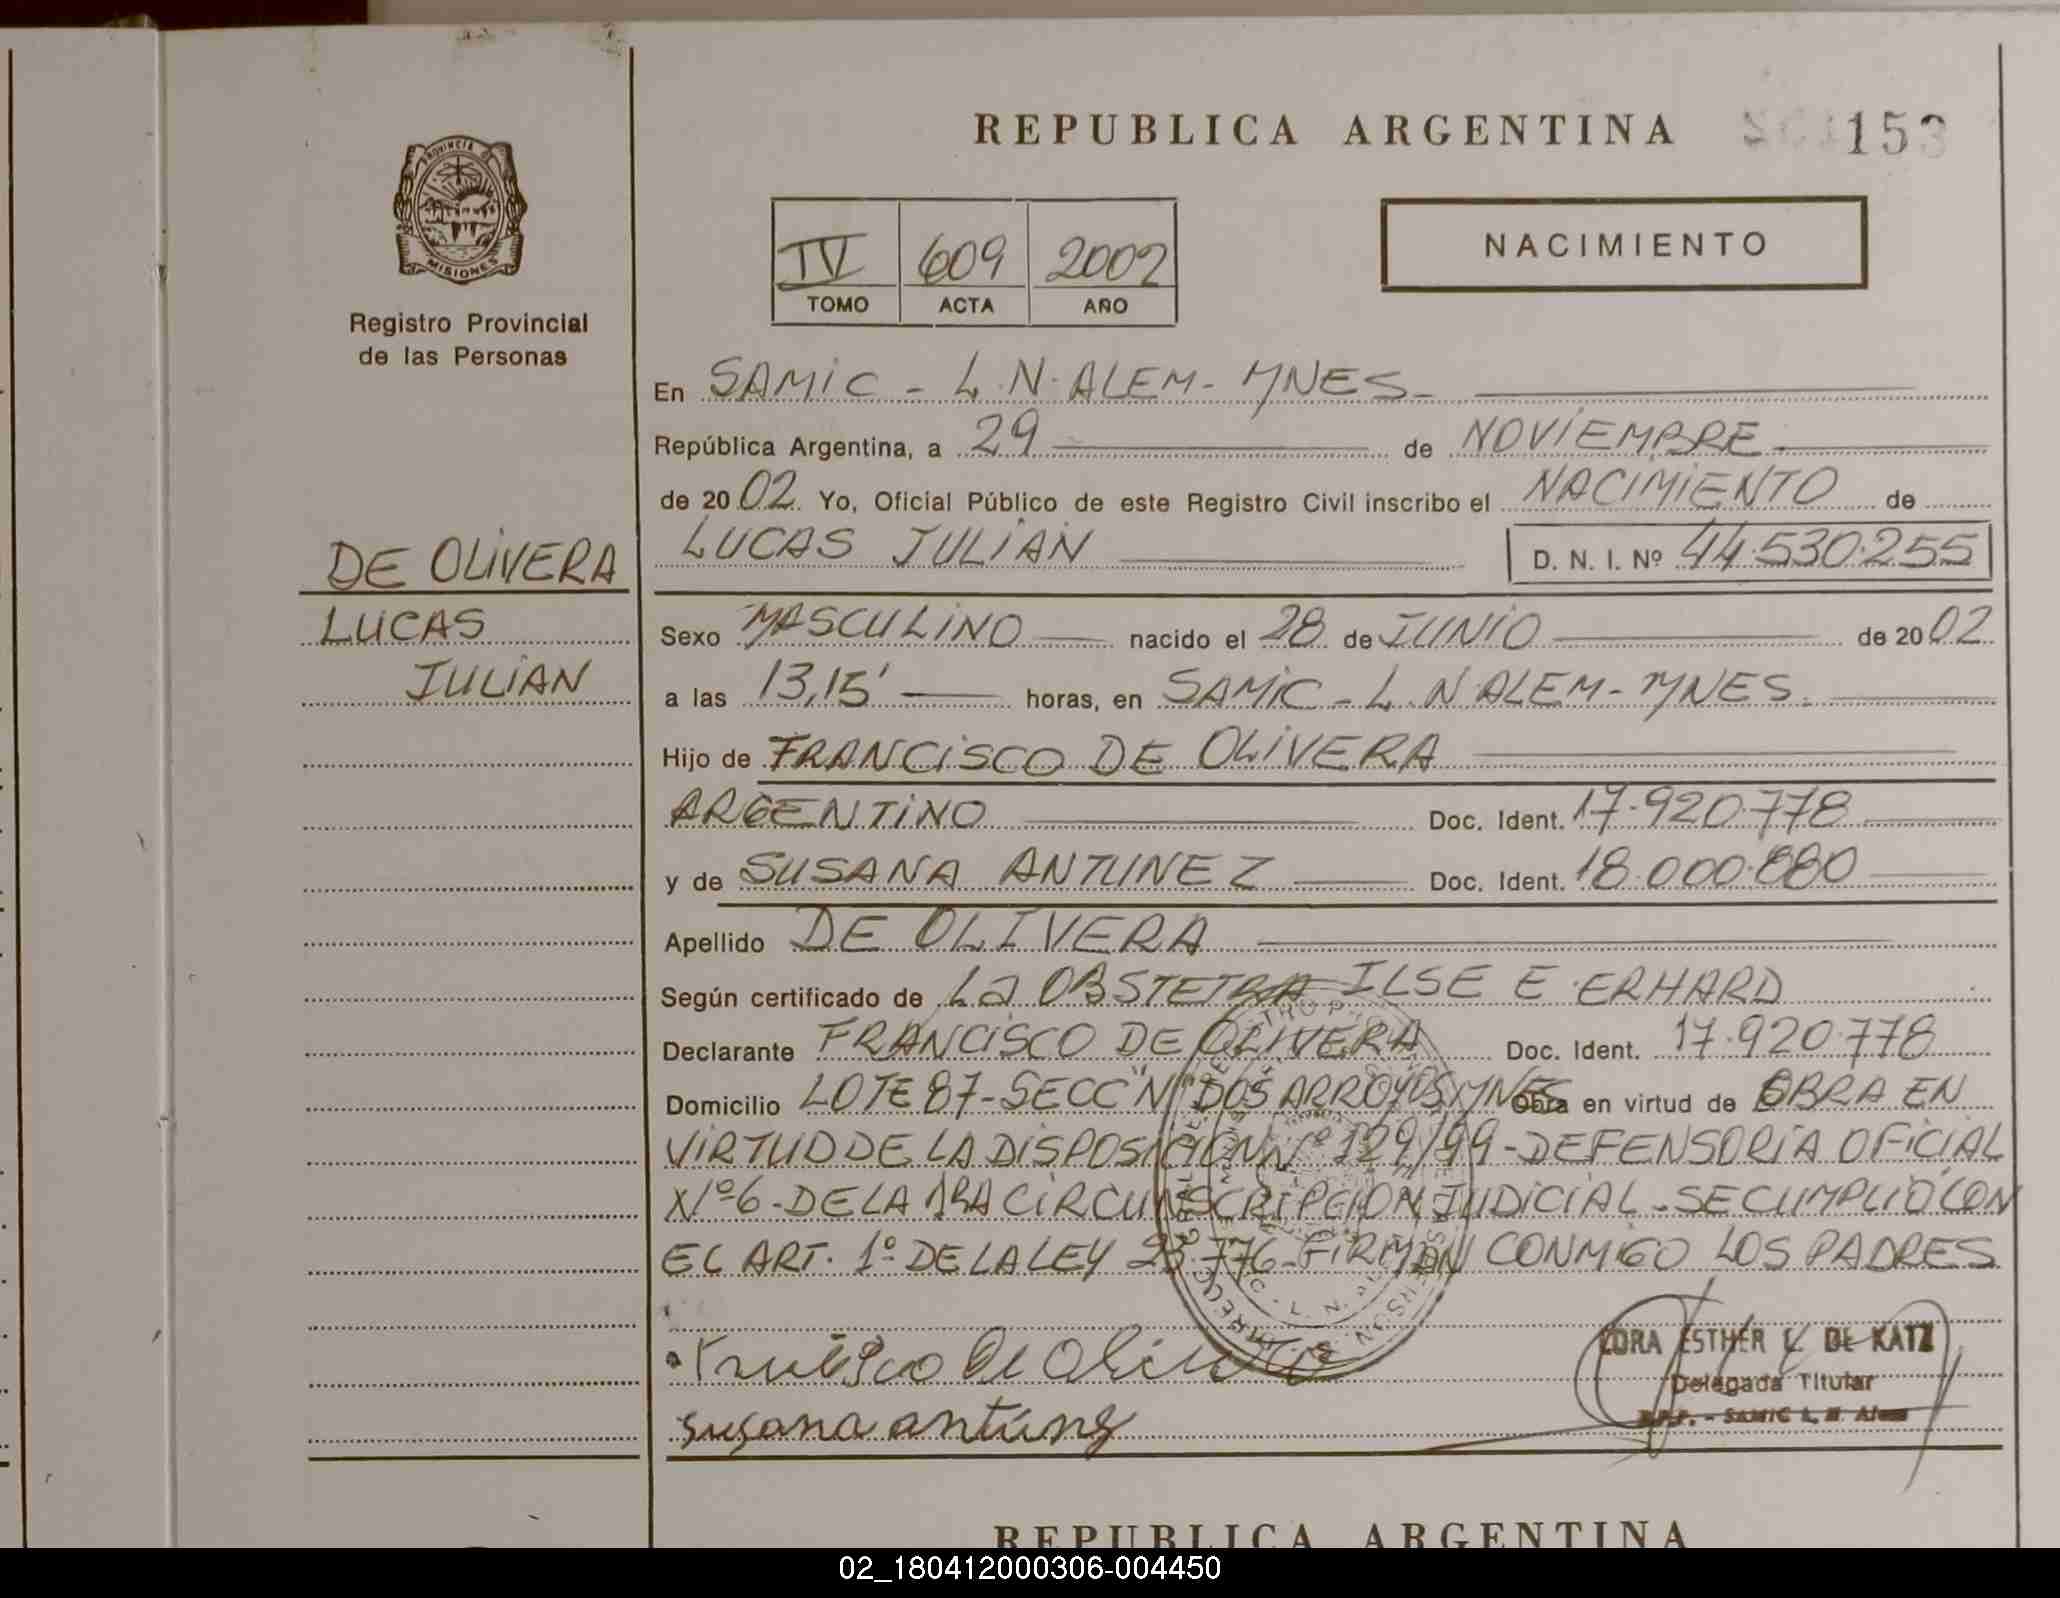 REPUBLICA ARGENTINA
153
PROVINCIA DE
MISIONES
Registro Provincial
de las Personas
IV 609 2002
TOMO ACTA AÑO
NACIMIENTO
En SAMIC - L.N. ALEM - MNES -
República Argentina, a 29 de NOVIEMBRE -
de 2002. Yo, Oficial Público de este Registro Civil inscribo el NACIMIENTO de
LUCAS JULIAN D. N. I. Nº 44.530.255
DE OLIVERA
LUCAS
JULIAN
Sexo MASCULINO nacido el 28 de JUNIO de 2002
a las 13,15' horas, en SAMIC - L.N. ALEM - MNES.
Hijo de FRANCISCO DE OLIVERA
ARGENTINO Doc. Ident. 17.920.778
y de SUSANA ANTUNEZ Doc. Ident. 18.000.880
Apellido DE OLIVERA
Según certificado de La OBSTETRA ILSE E. ERHARD
Declarante FRANCISCO DE OLIVERA Doc. Ident. 17.920.778
Domicilio LOTE 87 - SECC "N" DOS ARROYOS MNES Obra en virtud de OBRA EN
VIRTUD DE LA DISPOSICION Nº 129/99 - DEFENSORIA OFICIAL
Nº 6 - DE LA 1RA CIRCUNSCRIPCION JUDICIAL - SE CUMPLIO CON
EL ART. 1º DE LA LEY 23.776 - FIRMAN CONMIGO LOS PADRES
Francisco De Olivera
susana antúnez
ESTHER DE KATZ
Delegada Titular
R.P.P. - SAMIC L. N. Alem
REPUBLICA ARGENTINA
02_180412000306-004450